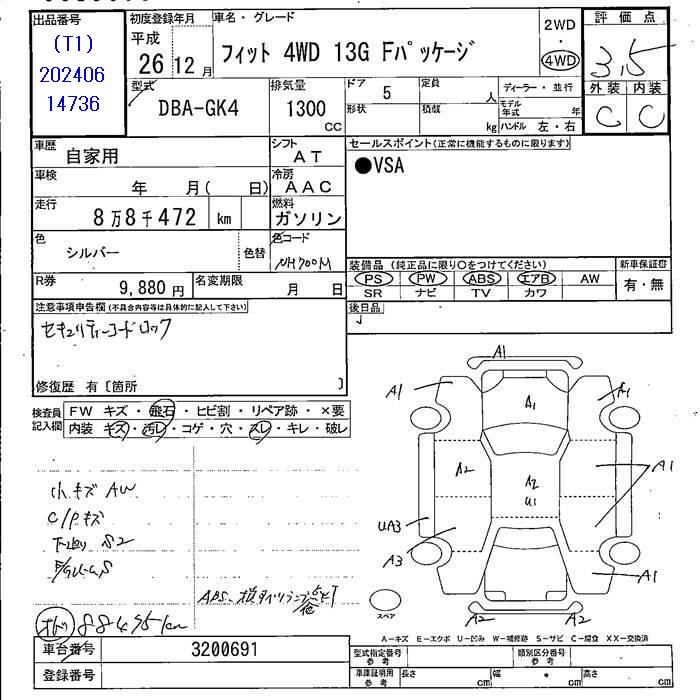 出品番号
(T1)
202406
14736
初度登録年月
平成
26年12月
車名・グレード
フィット 4WD 13G Fパッケージ
2WD
・
4WD
評価点
3.5
外装 内装
C C
型式
DBA-GK4
排気量
1300
CC
ドア 5
形状
定員 人
積載 kg
ディーラー・並行
モデル年式 年
ハンドル 左・右
車歴
自家用
シフト
AT
車検
年 月( 日)
冷房
AAC
走行
8万8千472 km
燃料
ガソリン
色
シルバー
色替
色コード
NH700M
R券
9,880円
名変期限
月 日
セールスポイント(正常に機能するものに限ります)
●VSA
装備品(純正品に限り○をつけてください)
PS PW ABS エアB AW
SR ナビ TV カワ
新車保証書
有・無
後日品
注意事項申告欄(不具合内容等は具体的に記入して下さい)
セキュリティーコードロック
修復歴 有〔箇所 〕
検査員記入欄
FW キズ・飛石・ヒビ割・リペア跡・×要
内装 キズ・汚レ・コゲ・穴・スレ・キレ・破レ
小キズ AW
C/Pキズ
下廻り S2
オド 88495km
A1
A1
A1
A1
A2
A2
U1
A1
UA3
A3
A1
A2
A2
スペア
A-キズ E-エクボ U-凹み W-補修跡 S-サビ C-腐食 XX-交換済
車台番号
3200691
登録番号
型式指定番号
参考
類別区分番号
参考
車庫証明用
参考
長さ cm 幅 cm 高さ cm